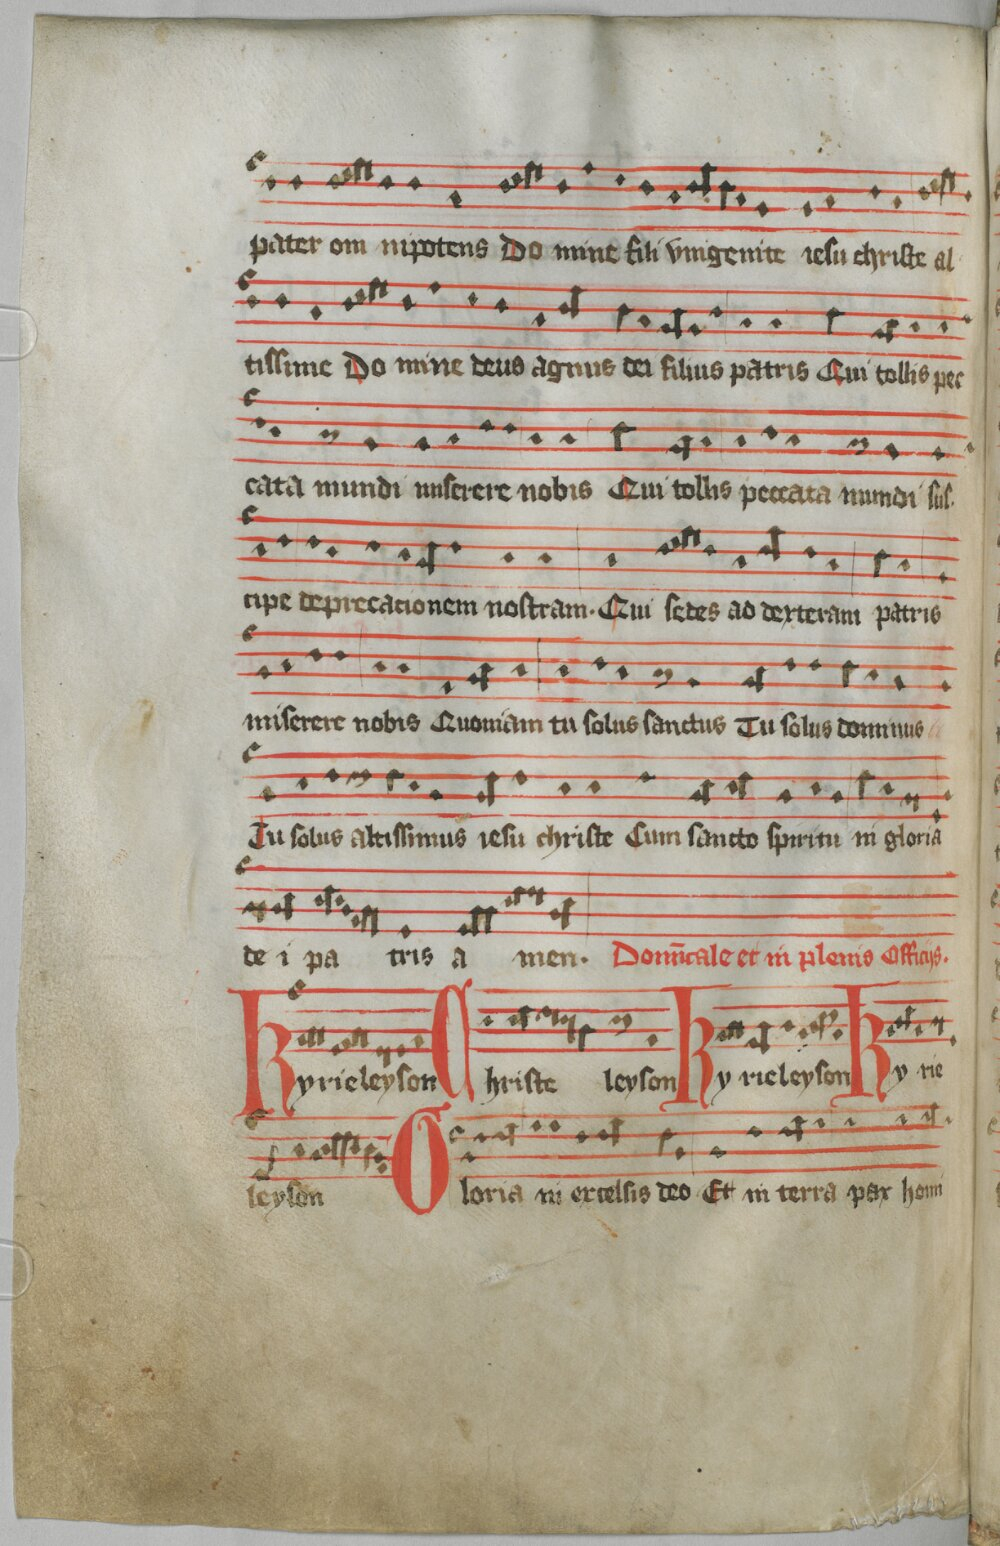 pater om nipotens Do mine fili vnigenite iesu christe al
tissime Do mine deus agnus dei filius patris Qui tollis pec
cata mundi miserere nobis Qui tollis peccata mundi sus.
cipe deprecacionem nostram. Qui sedes ad dexteram patris
miserere nobis Quoniam tu solus sanctus Tu solus dominus
Tu solus altissimus iesu christe Cum sancto spiritu in gloria
de i pa tris a men. Domīcale et in plenis Officijs.
Kyrieleyson Christe leyson Ky rieleyson Ky rie
leyson Gloria in excelsis deo Et in terra pax homi